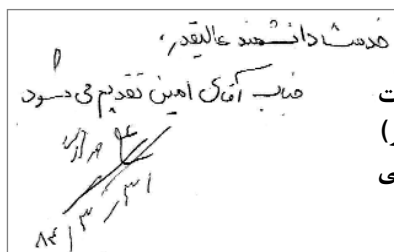 خدمت دانشمند عالیقدر،
جناب آقای امین تقدیم می شود
ت
ر)
ی
۸۴/۳/۳۱